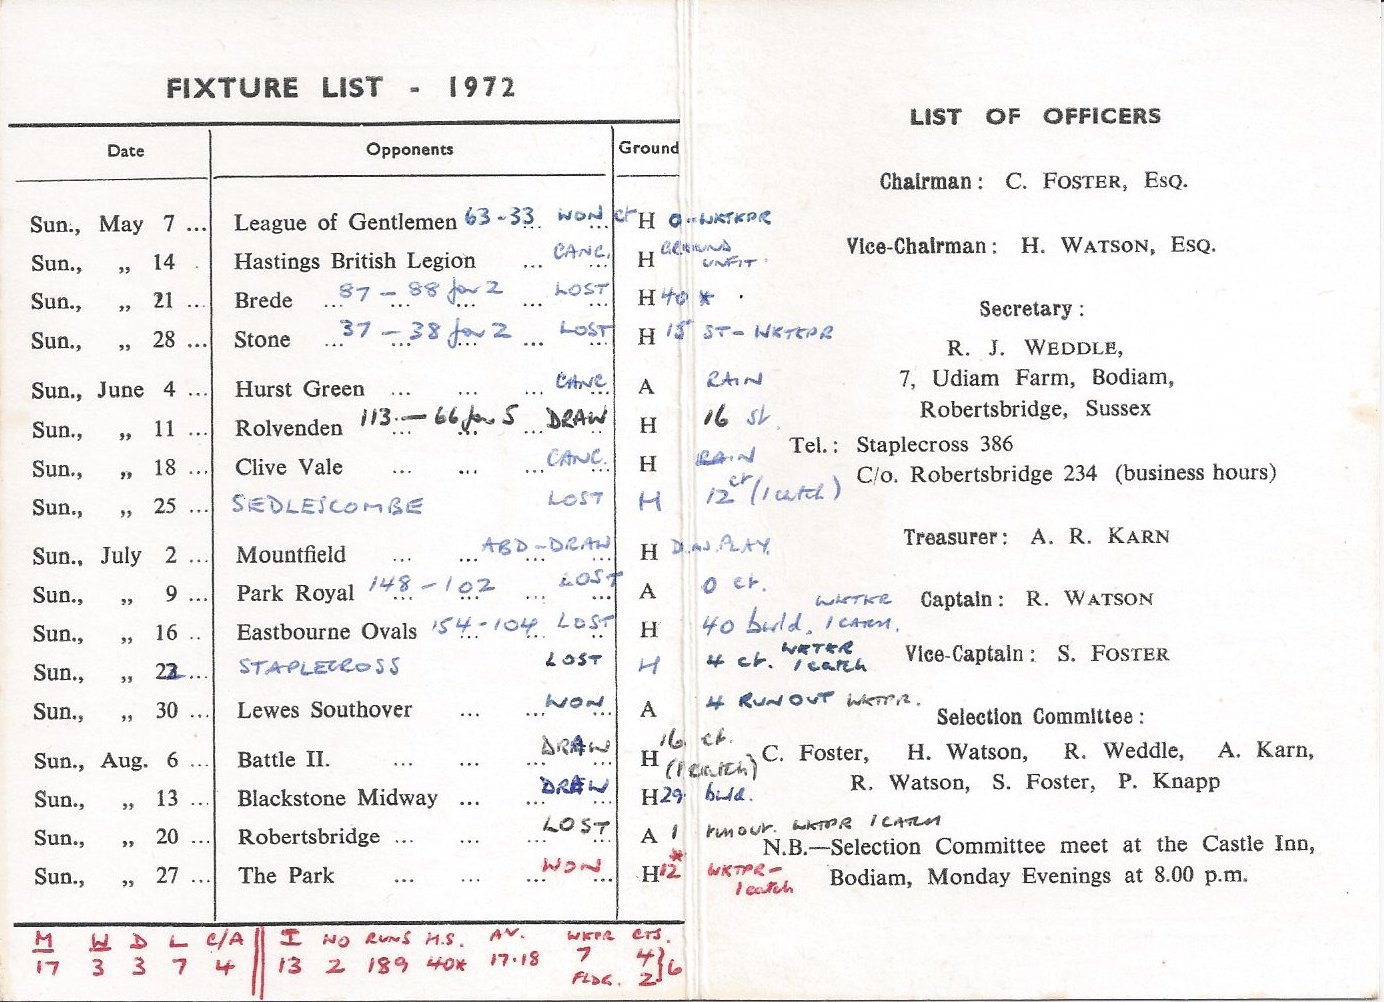 FIXTURE LIST - 1972
Date Opponents Ground
Sun., May 7 ... League of Gentlemen 63-33 WON ct H 0-WKTKPR
Sun., „ 14 . Hastings British Legion ... CANC. H GROUND UNFIT.
Sun., „ 21 ... Brede 87 - 88 for 2 LOST H 40 *
Sun., „ 28 ... Stone 37 - 38 for 2 LOST H 15 ST - WKTKPR
Sun., June 4 ... Hurst Green ... ... ... CANC A RAIN
Sun., „ 11 ... Rolvenden 113 - 66 for 5 DRAW H 16 st.
Sun., „ 18 ... Clive Vale ... ... ... CANC. H RAIN
Sun., „ 25 ... SEDLESCOMBE LOST H 12 ct (1 catch)
Sun., July 2 ... Mountfield ... ... ABD - DRAW H
Sun., „ 9 ... Park Royal 148 - 102 LOST A 0 ct.
Sun., „ 16 .. Eastbourne Ovals 154 - 104 LOST H 40 bwld. WKTKR
Sun., „ 23 ... STAPLECROSS LOST H 4 ct. WKTKR 1 catch
Sun., „ 30 ... Lewes Southover ... WON A 4 RUN OUT WKTPR.
Sun., Aug. 6 ... Battle II. ... ... DRAW H 16 ct. (1 catch)
Sun., „ 13 ... Blackstone Midway ... DRAW H 29 bwld.
Sun., „ 20 ... Robertsbridge ... ... LOST A 1 runout. WKTPR 1 CATCH
Sun., „ 27 ... The Park ... ... WON H 12 * WKTPR - 1 catch
M W D L C/A I NO RUNS H.S. AV. WKPR CTS.
17 3 3 7 4 13 2 189 40* 17.18 7 4 } 6
FLDG. 2
LIST OF OFFICERS
Chairman: C. FOSTER, ESQ.
Vice-Chairman: H. WATSON, ESQ.
Secretary:
R. J. WEDDLE,
7, Udiam Farm, Bodiam,
Robertsbridge, Sussex
Tel.: Staplecross 386
C/o. Robertsbridge 234 (business hours)
Treasurer: A. R. KARN
Captain: R. WATSON
Vice-Captain: S. FOSTER
Selection Committee:
C. Foster, H. Watson, R. Weddle, A. Karn,
R. Watson, S. Foster, P. Knapp
N.B.—Selection Committee meet at the Castle Inn,
Bodiam, Monday Evenings at 8.00 p.m.